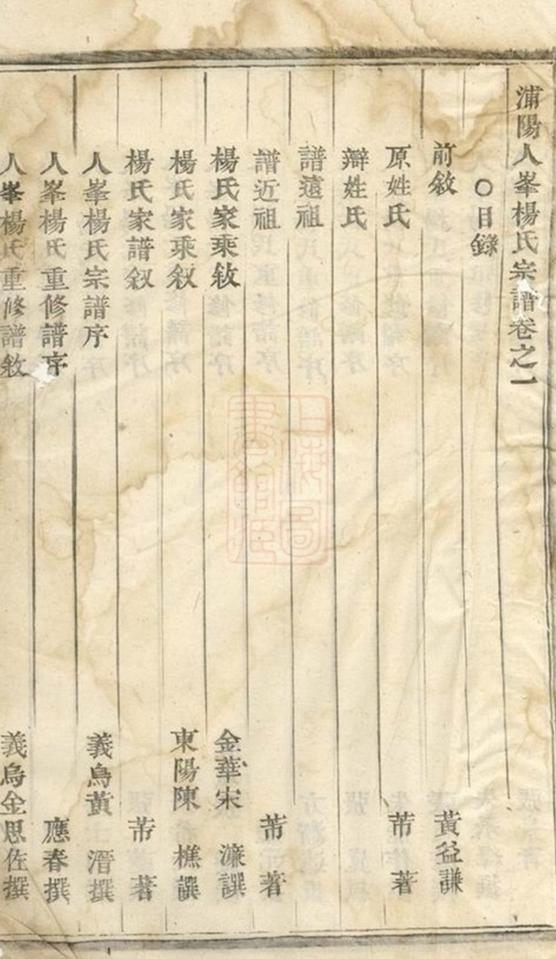 浦陽人峯楊氏宗譜卷之一
○目錄
前敘 黃益謙
原姓氏 芾著
辯姓氏
譜遠祖
譜近祖 芾著
楊氏家乘敘 金華宋濂譔
楊氏家乘敘 東陽陳樵譔
楊氏家譜叙 芾著
人峯楊氏宗譜序 義烏黃溍撰
人峯楊氏重修譜序 應春撰
人峯楊氏重修譜敘 義烏金思佐撰
上海圖書館藏